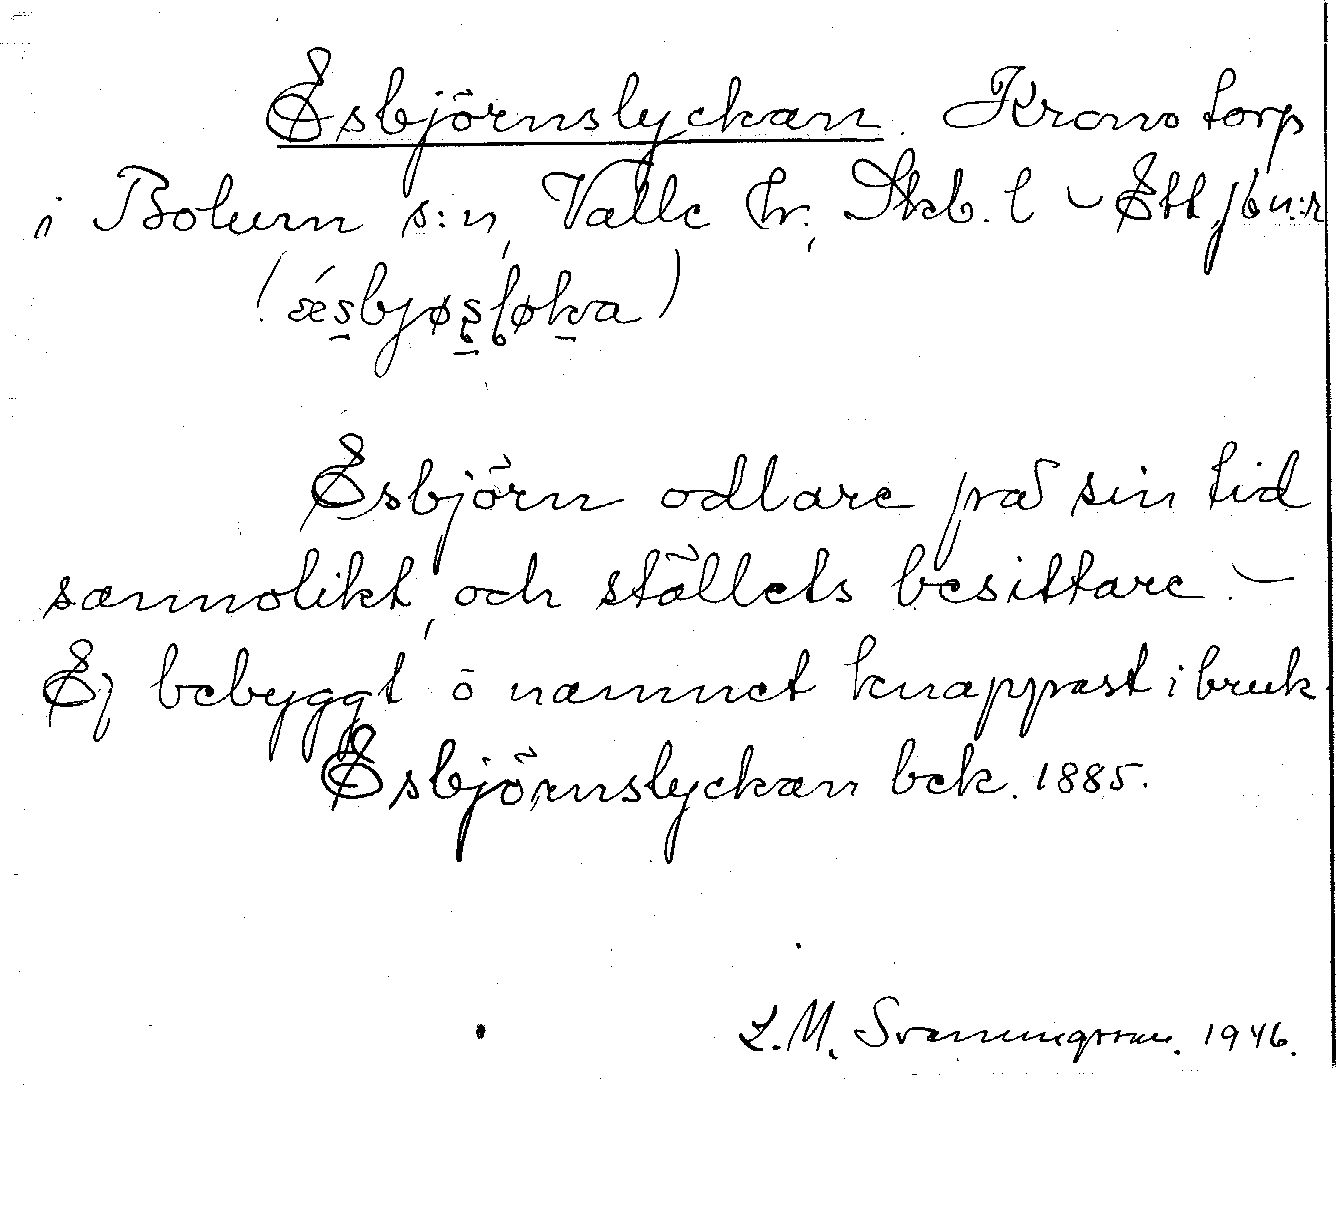 Esbjörnslyckan. Kronotorp
i Bolum s:n, Valle hr., Skb. l – Ett jbn:r
(ǽsbjøsløka)
Esbjörn odlare på sin tid
sannolikt, och ställets besittare. –
Ej bebyggt o namnet knappast i bruk.
Esbjörnslyckan bek. 1885.
L. M. Svenungsson. 1946.